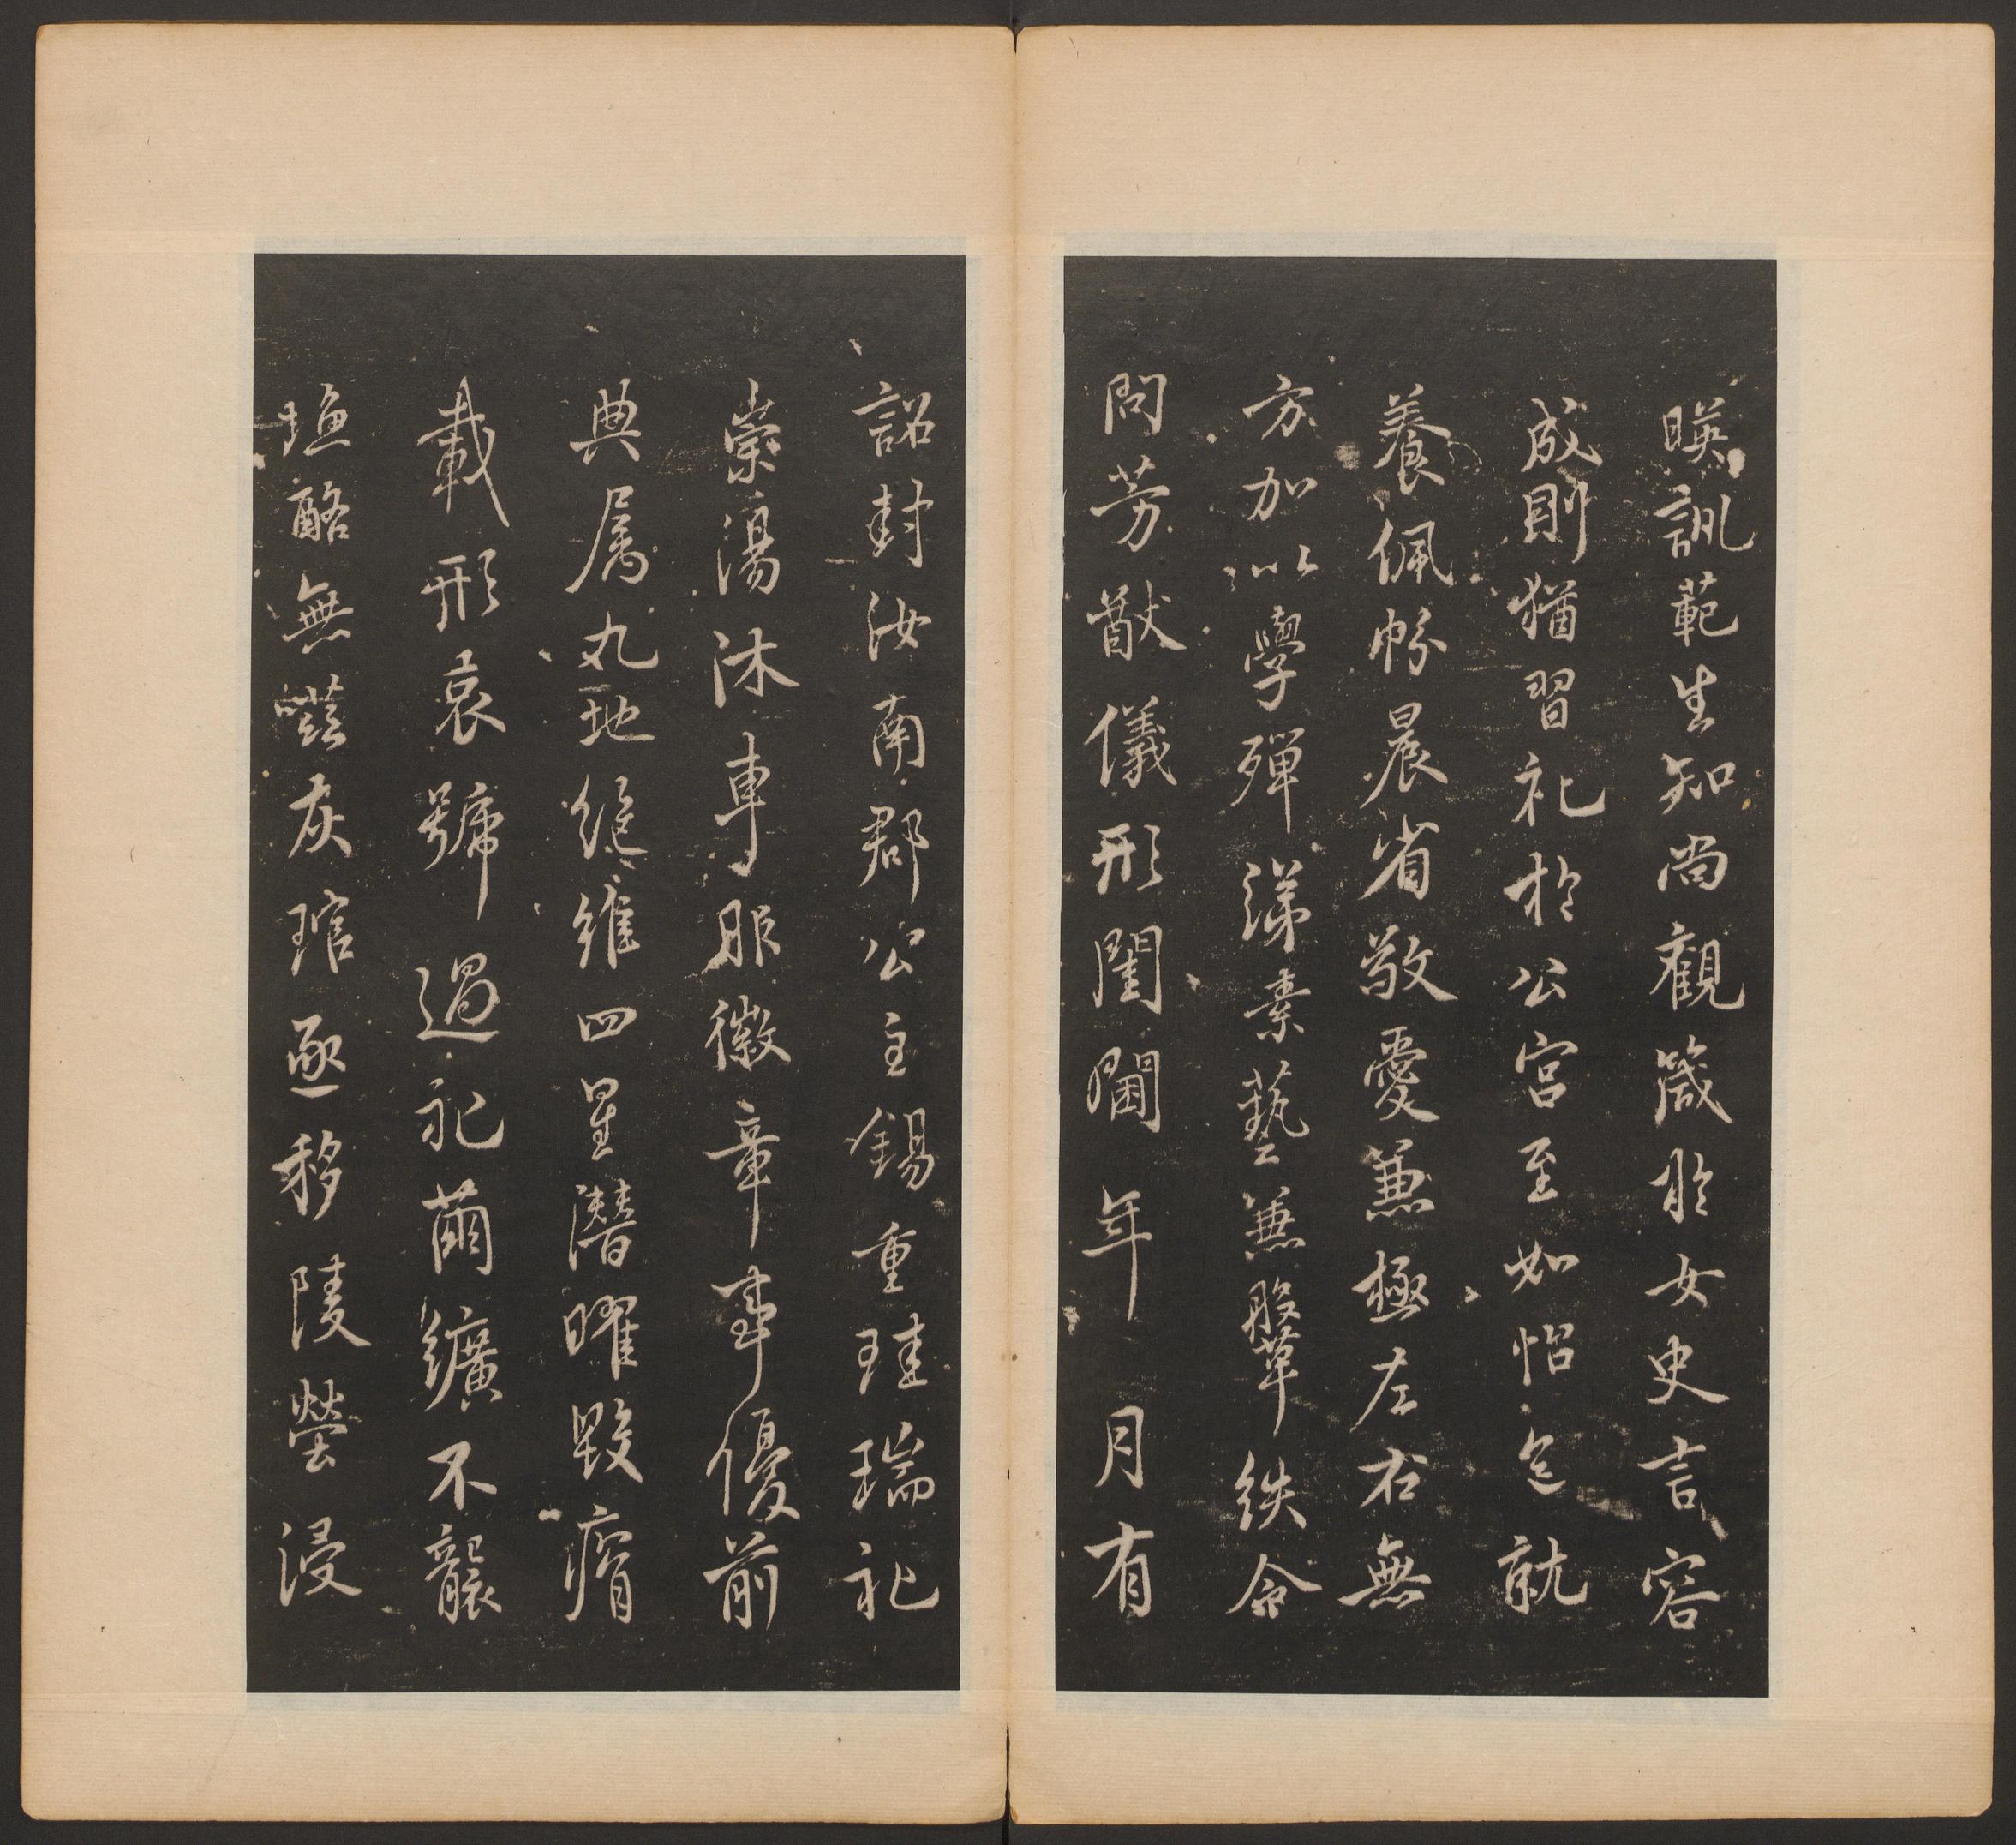 暎訓範生知尚觀箴於女史言容
成則猶習礼於公宮至如怡色就
養佩帉晨省敬愛兼極左右無
方加以學殫綈素藝兼鞶紩令
問芳猷儀形閨閫年月有
詔封汝南郡公主錫重珪瑞礼
崇湯沐車服徽章事優前
典属九地絶維四星潛曜毀瘠
載形哀號過礼繭纊不襲
塩酪無嗞灰琯亟移陵塋浸